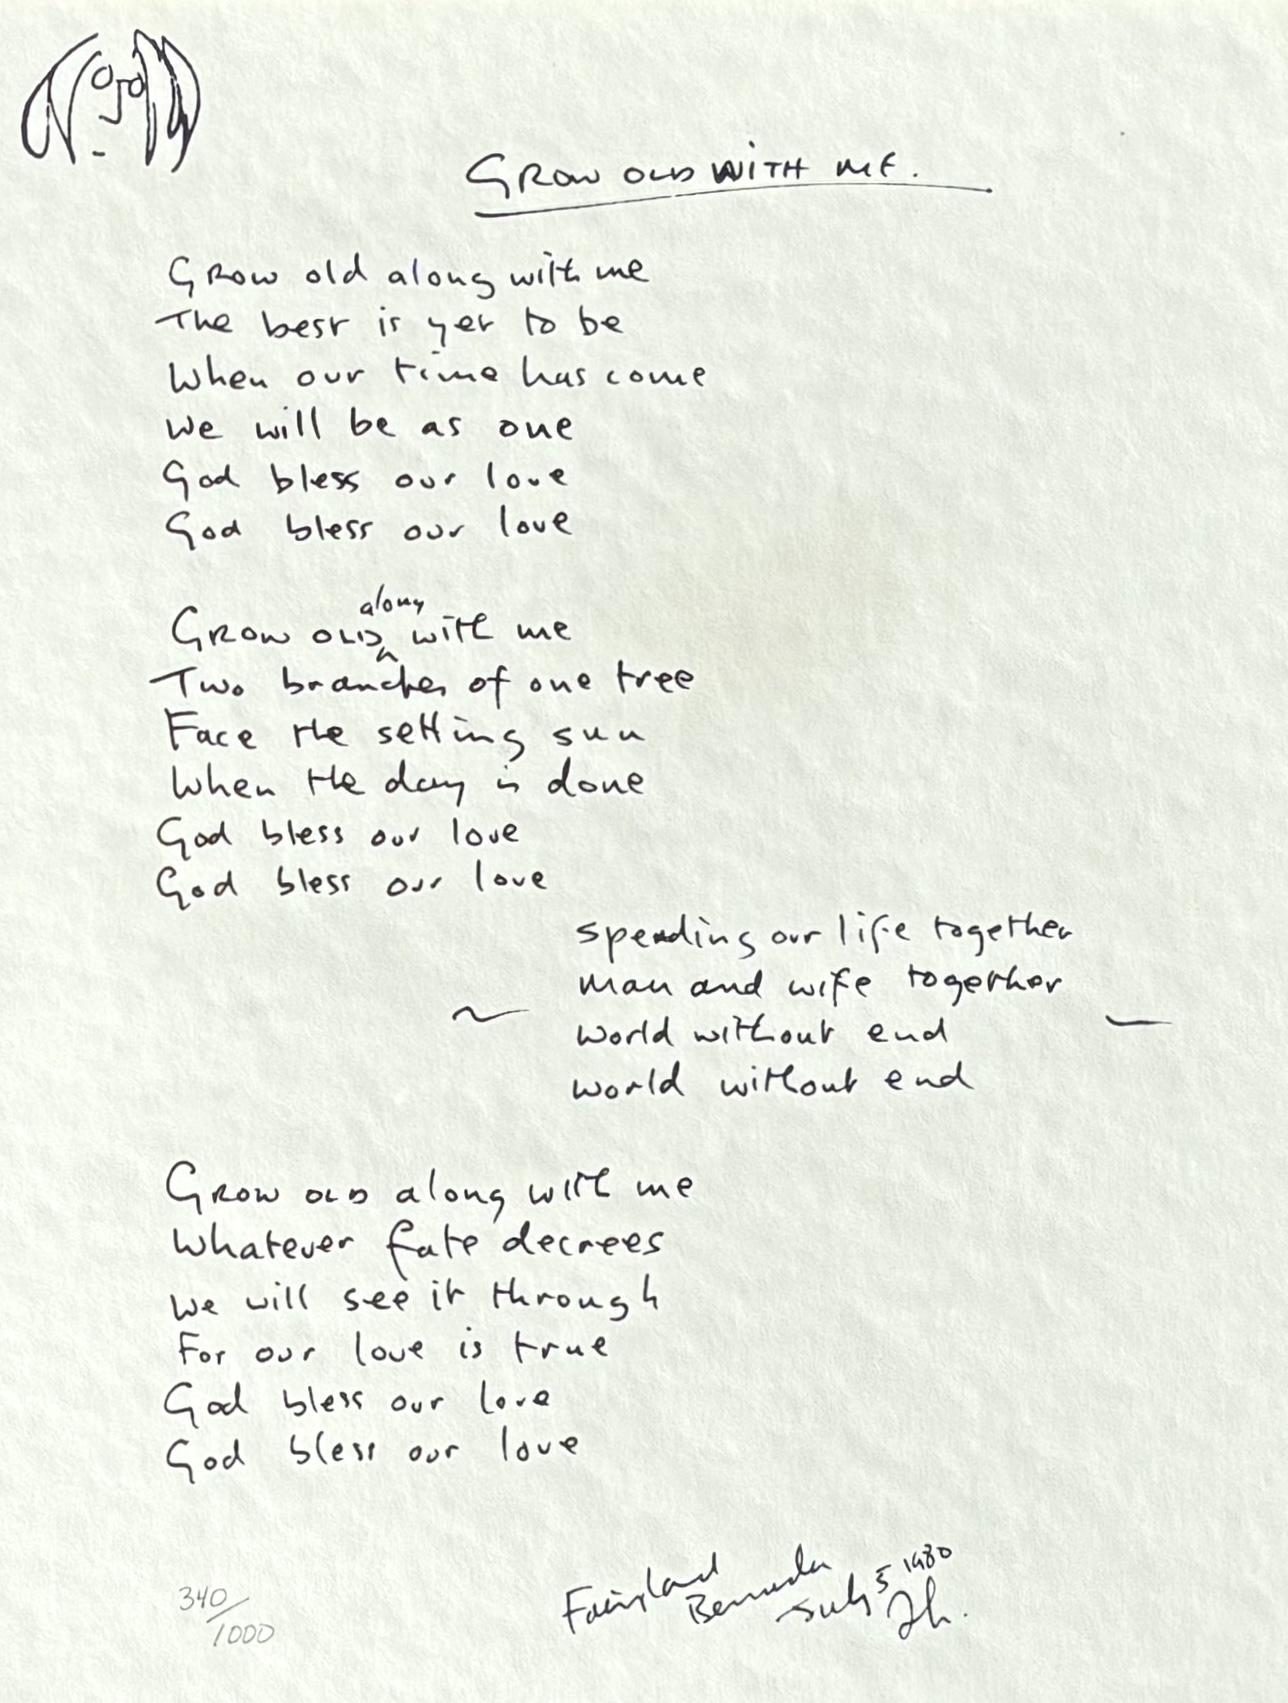 GROW OLD WITH ME.
Grow old along with me
The best is yet to be
When our time has come
We will be as one
God bless our love
God bless our love
along
GROW OLD ^ with me
Two branches of one tree
Face the setting sun
When the day is done
God bless our love
God bless our love
spending our life together
man and wife together
~ world without end —
world without end
GROW OLD along with me
Whatever fate decrees
We will see it through
For our love is true
God bless our love
God bless our love
Fairyland Bermuda July 5 1980
340/1000